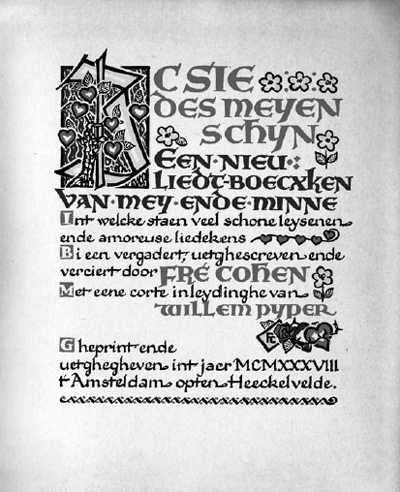 IC SIE
DES MEYEN
SCHYN
EEN·NIEU
LIEDT-BOECXKEN
VAN·MEY·ENDE·MINNE
Int welcke staen veel schone leysenen
ende amoreuse liedekens
Bi een vergadert, uetghescreven ende
verciert door FRÉ COHEN
Met eene corte inleydinghe van
WILLEM PYPER
FC
Gheprint ende
uetghegheven int jaer MCMXXXVIII
t'Amsteldam opten Heeckelvelde.